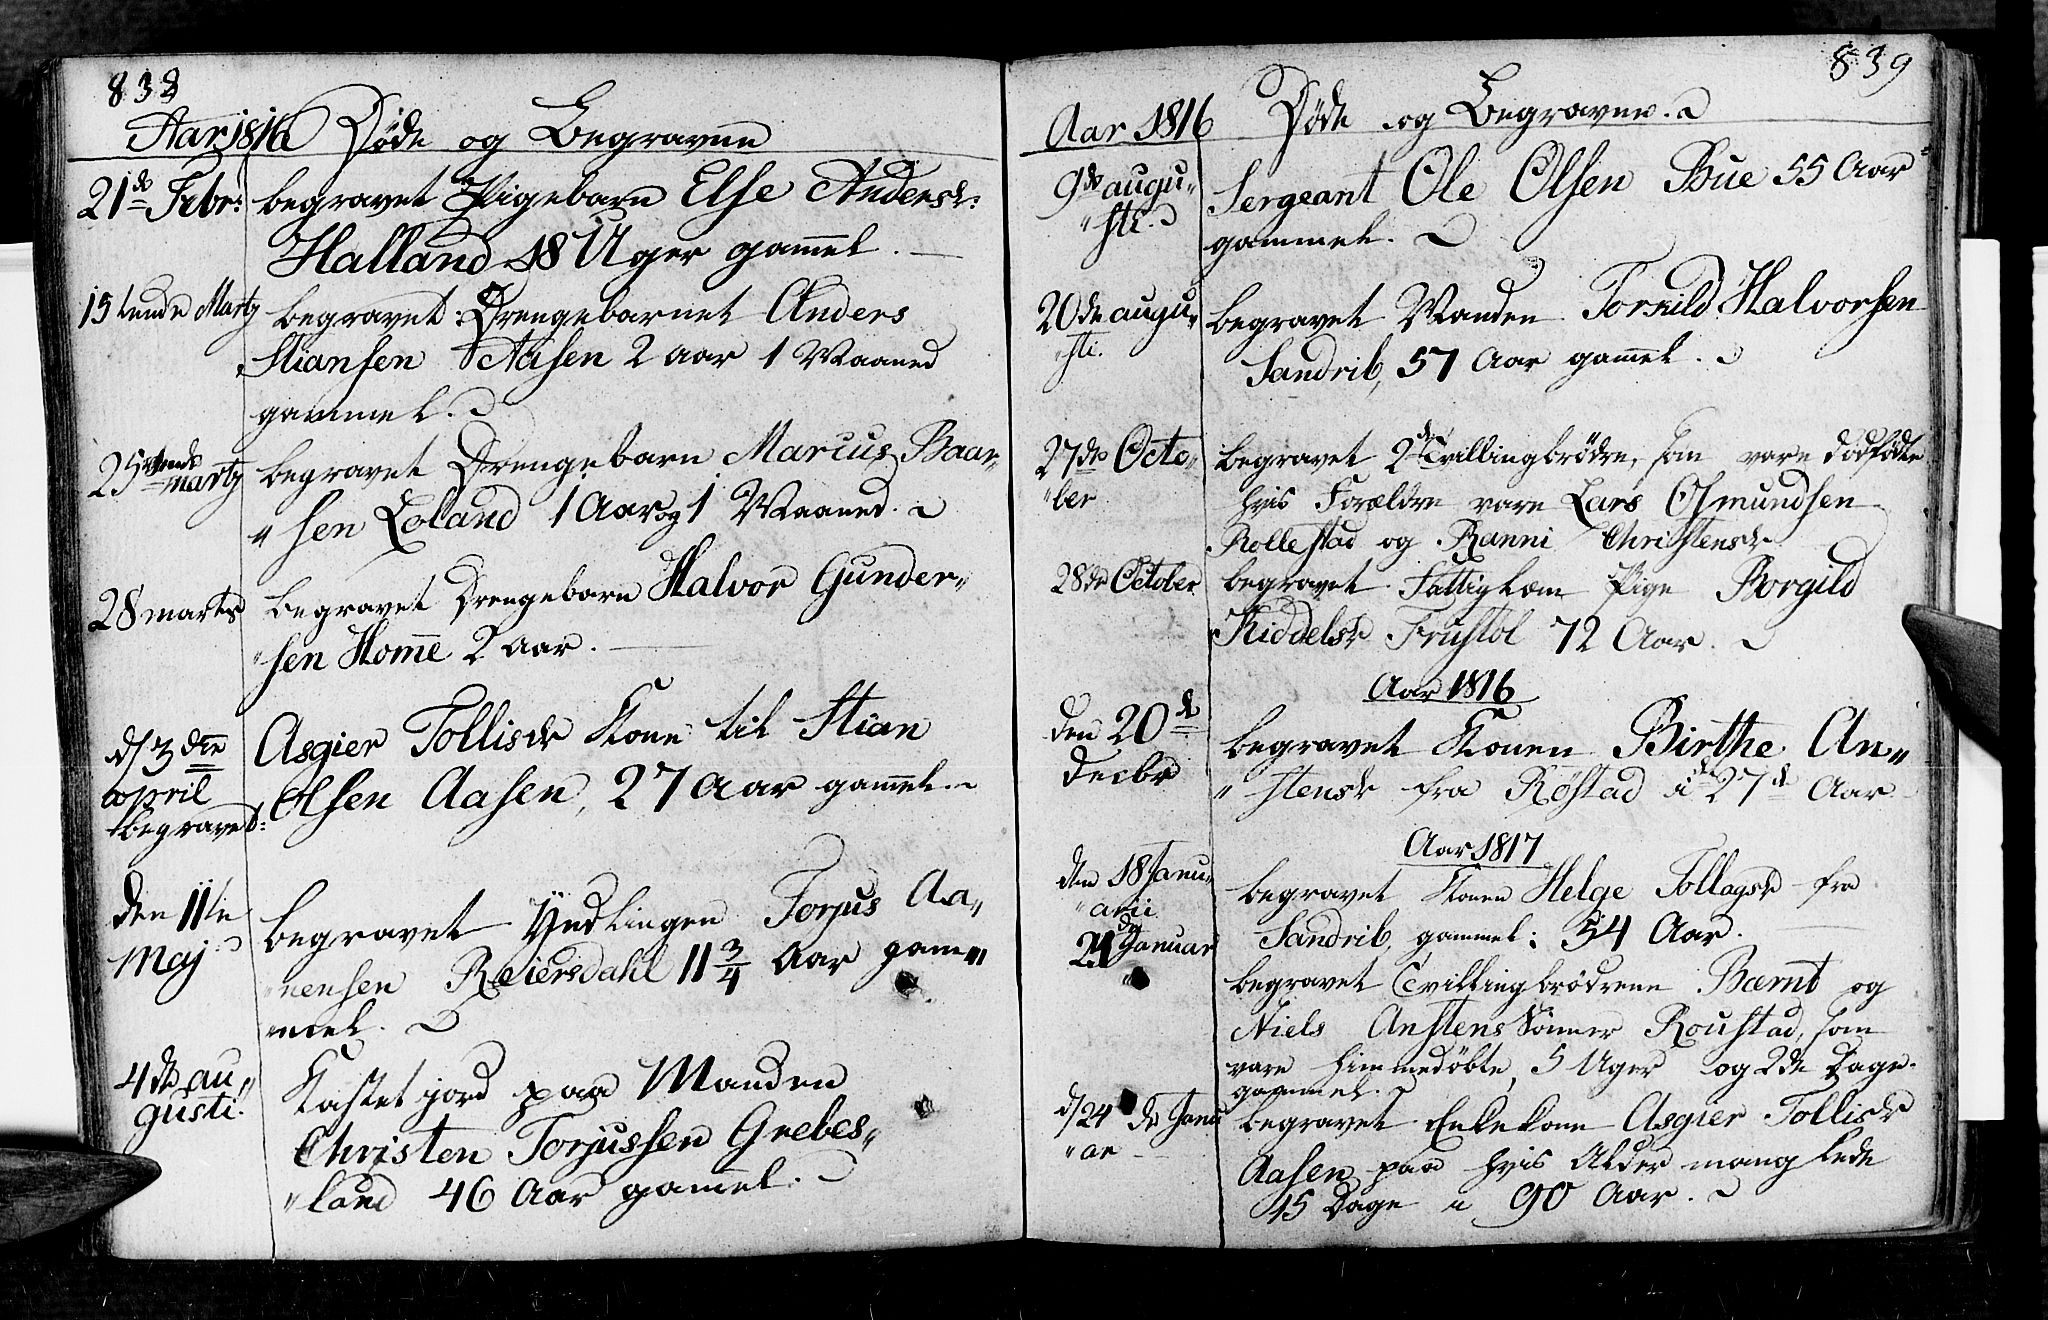 838
Aar 1816 Døde og Begravne
21de Febr: begravet Pigebarn Else Andersdr:
Halland 18 Uger gam̄el.
15tende Martz begravet Drengebarnet Anders
Stiansen Aasen 2 aar 1 Maaned
gammel.
25tende martz begravet Drengebarn Marcus Baar-
"sen Loland 1 Aar og 1 Maaned.
28 marts begravet Drengebarn Halvor Gunder"
"sen Hom̄e 2 aar.
d/3die april begravet: Asgier Tollisdr Kone til Stian
Olsen Aasen, 27 Aar gam̄el.
den 11te Maj begravet Yndlingen Torjus Aa"
"nensen Reiersdahl 11 3/4 Aar gam"
"mel.
4de au"gusti. Kastet jord paa Manden
Christen Torjussen Grebes"
"land 46 Aar gam̄el.
839
Aar 1816 Døde og Begravne.
9de augu"sti. Sergeant Ole Olsen Bue 55 Aar
gammel.
20de augu"sti. begravet Manden Torkild Halvorsen
Sandrib, 57 Aar gam̄el.
27de Octo"ber begravet 2de Tvillingbrödre, som vare dödfödte
hvis Forældre vare Lars Osmundsen
Rollestad og Ranni Christensdr
28de October begravet Fattiglem Pige Borgild
Kiddelsdr Frustöl 72 Aar.
Aar 1816
den 20de Decbr begravet Konen Birthe An"
"stensdr fra Röstad i 27de Aar
Aar 1817
den 18 Janu"arii begravet Konen Helge Tollagsdr fra
Sandrib, gammel: 54 Aar.
21de Januar begravet Tvillingbrödrene Bærnt og
Niels Anstens Sönner Roustad, som
vare hjemmedöbte, 5 Uger og 2de Dage
gammel.
d/24de Janu"ar begravet Enkekone Asgier Tollisdr
Aasen, paa hvis Alder manglede
15 Dage i 90 Aar.